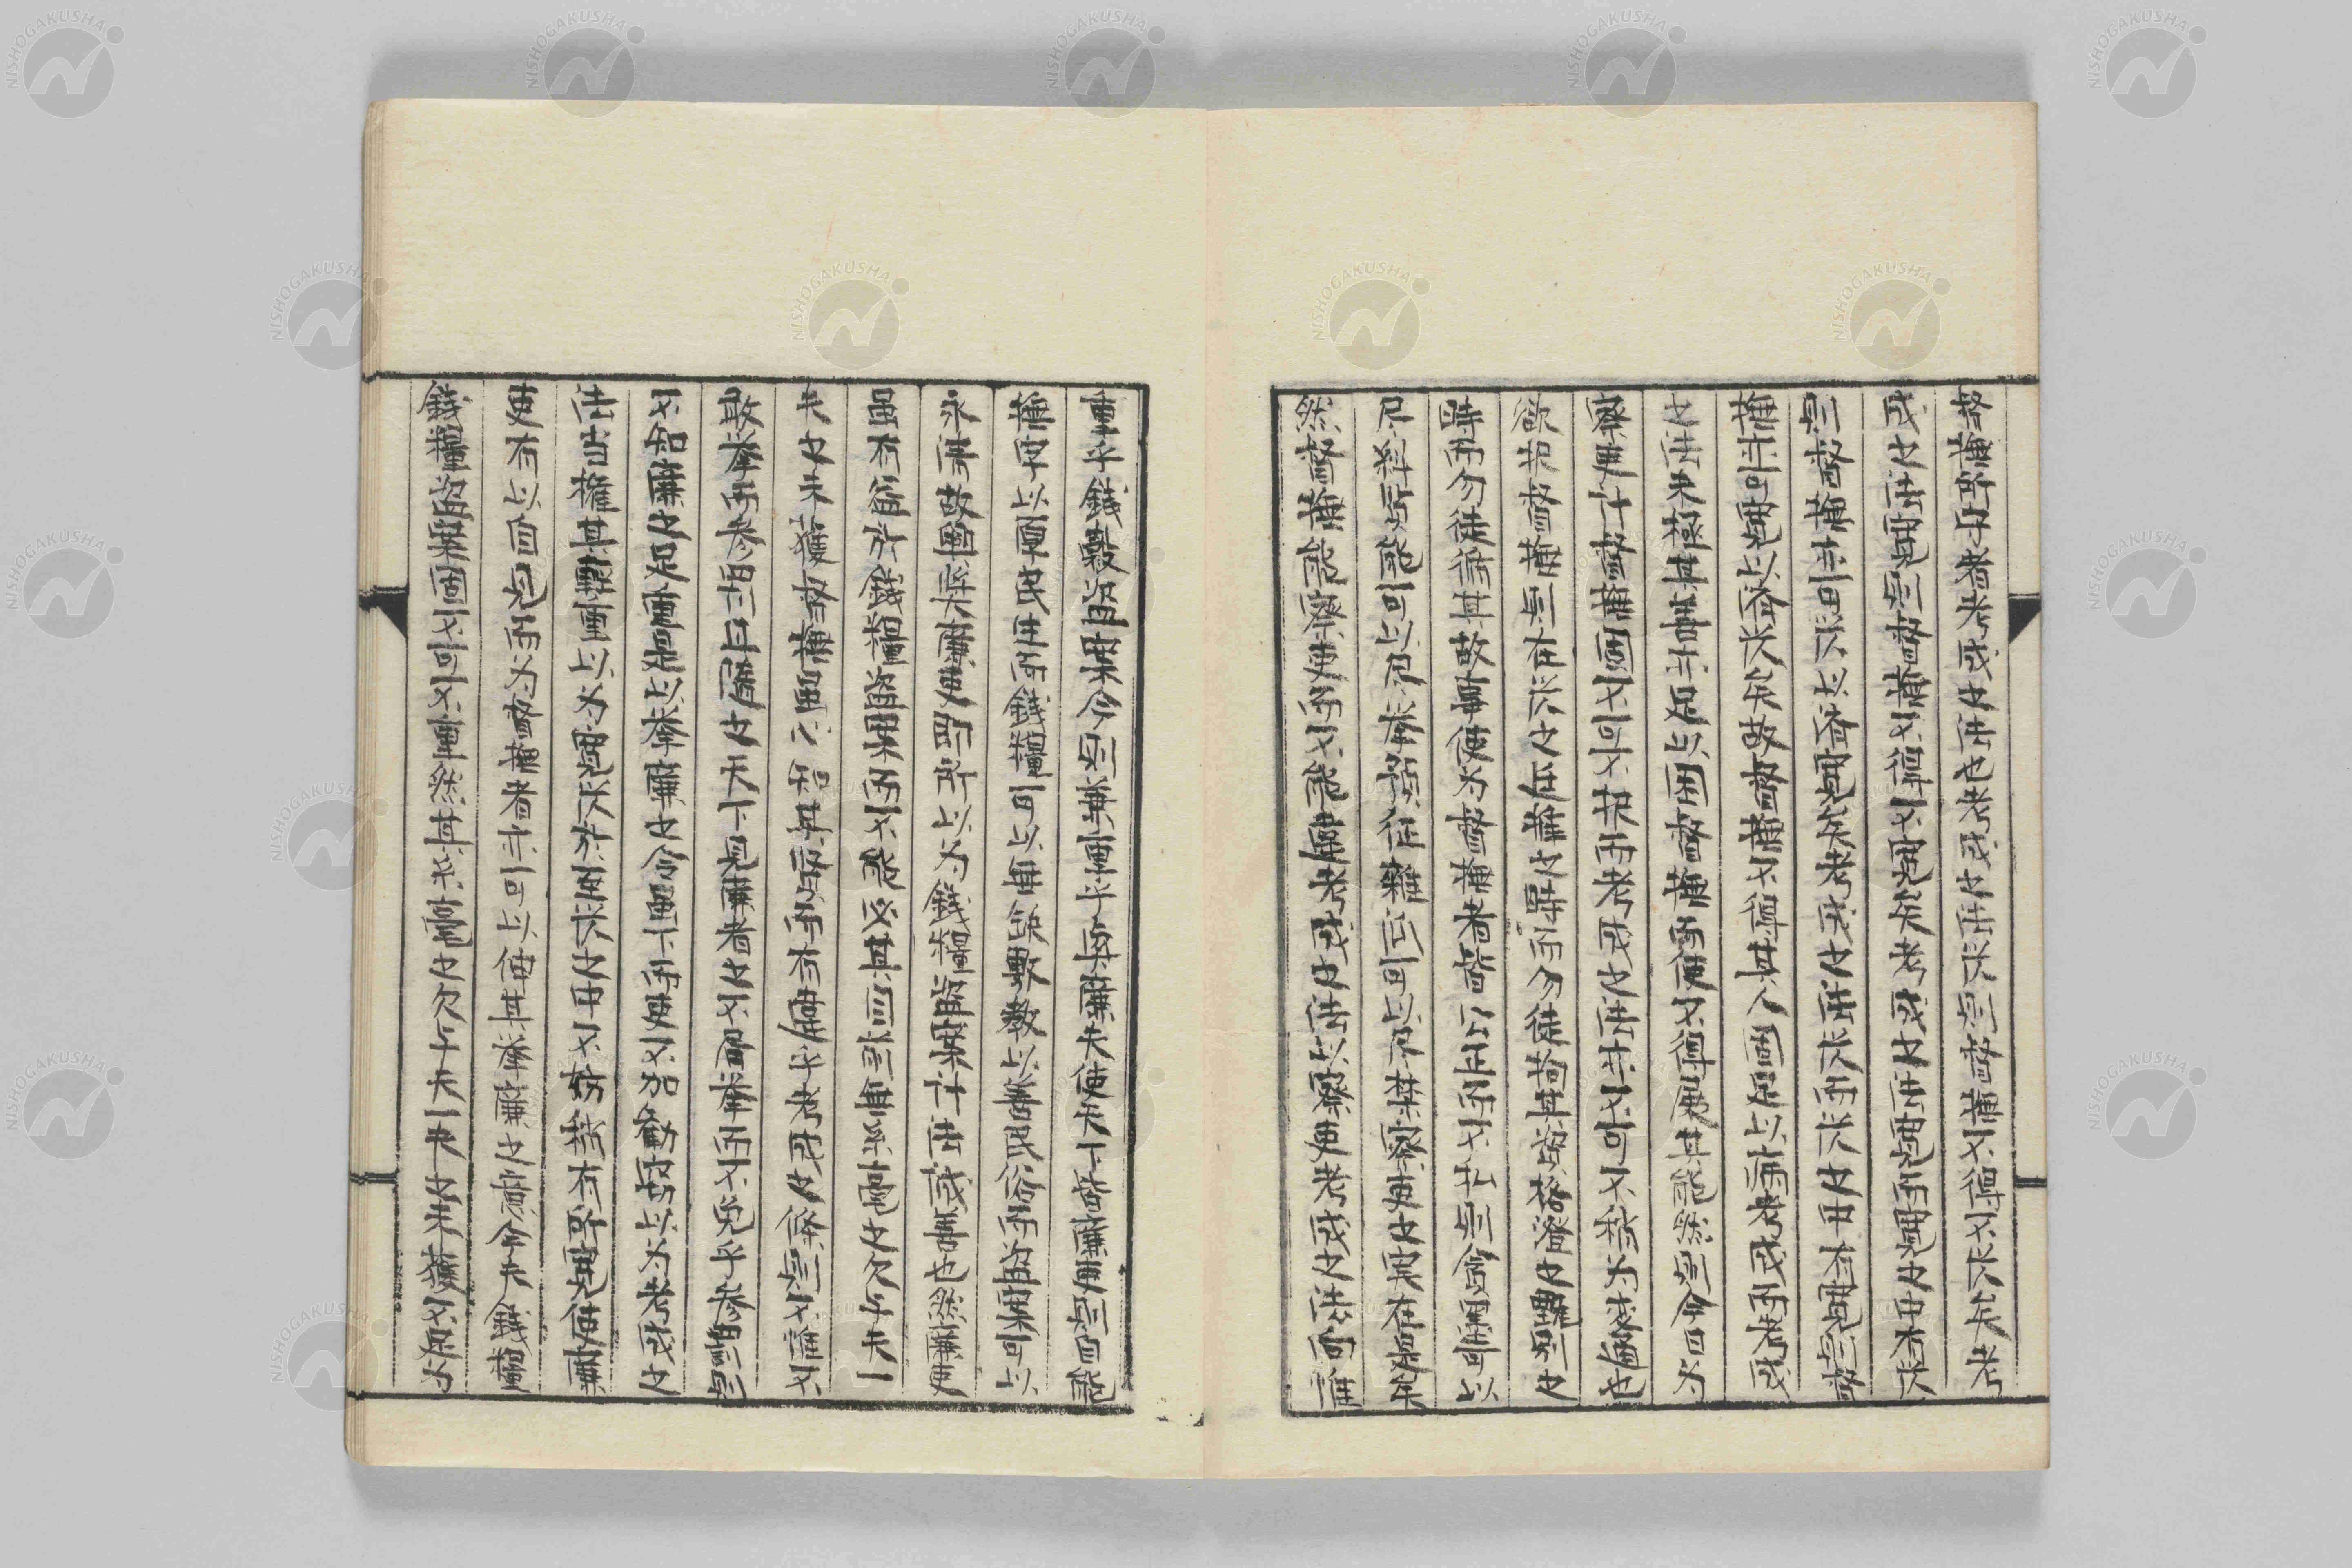 督撫所守者考成之法也考成之法嚴則督撫不得不嚴矣考
成之法寬則督撫不得不寬矣考成之法寬而寬之中有嚴
則督撫亦可以濟寬矣考成之法嚴而嚴之中有寬則督
撫亦可寬以濟嚴矣故督撫不得其人固足以病考成而考成
之法未極其善亦足以困督撫而使不得展其能然則今日為
察吏計督撫固不可不擇而考成之法亦不可不稍為變通也
欲擇督撫則在嚴之任推之時而勿徒循其資格澄之點則之
時而勿徒循其故事使為督撫者皆公正而不私則貪墨可以
尽糾賢能可以尽舉預征雜派可以尽禁察吏之實在是矣
然督撫能察吏而不能違考成之法以察吏考成之法向誰
重乎錢穀盜案今則兼重乎舉廉夫使天下皆廉吏則自能
撫字以厚民生而錢糧可以無缺敷教以善民俗而盜案可以
永清故興舉廉吏即所以為錢糧盜案計法誠善也然廉吏
雖有益於錢糧盜案而不能必其目前無系毫之欠乎夫一
夫之未獲督撫雖心知其賢而有礙乎考成之條則不誰不
敢舉而參罰且隨之天下見廉者之不嘗舉而不免乎參罰則
不知廉之足重是以舉廉之令雖下而吏不加勸竊以為考成之
法当權其輕重以為寬嚴於至嚴之中不妨稍有所寬使廉
吏有以自見而為督撫者亦可以伸其舉廉之意今夫錢糧
錢糧盜案固不可不重然其系毫之欠乎夫一夫之未獲不足為